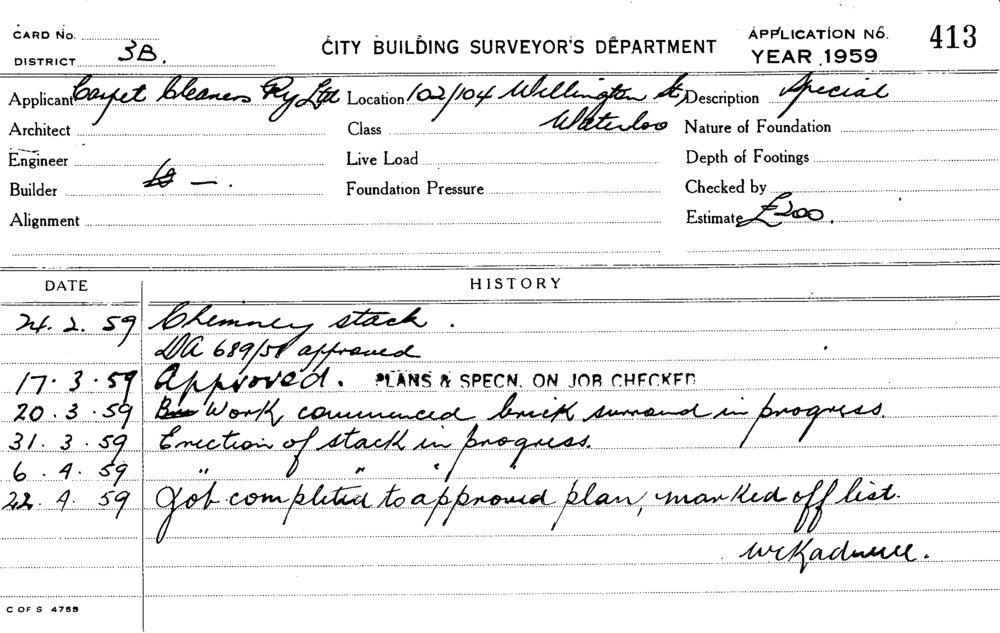 CARD No.
CITY BUILDING SURVEYOR'S DEPARTMENT
APPLICATION No. 413
DISTRICT 3B.
YEAR 1959
Applicant Carpet Cleaners Pty Ltd Location 102/104 Wellington St, Description Special
Waterloo
Architect Class Nature of Foundation
Engineer Live Load Depth of Footings
Builder — . Foundation Pressure Checked by
Alignment Estimate £200.
DATE HISTORY
24. 2. 59 Chimney stack.
DA 689/58 approved
17. 3. 59 Approved. PLANS & SPECN. ON JOB CHECKED
20. 3. 59 Work commenced brick surround in progress.
31. 3. 59 Erection of stack in progress.
6. 4. 59 " " " "
22. 4. 59 Job completed to approved plan, marked off list.
C OF S 4755